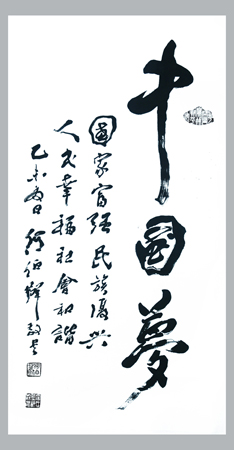 中國夢
國家富强民族復兴
人民幸福社會和諧
乙未日何伯輝